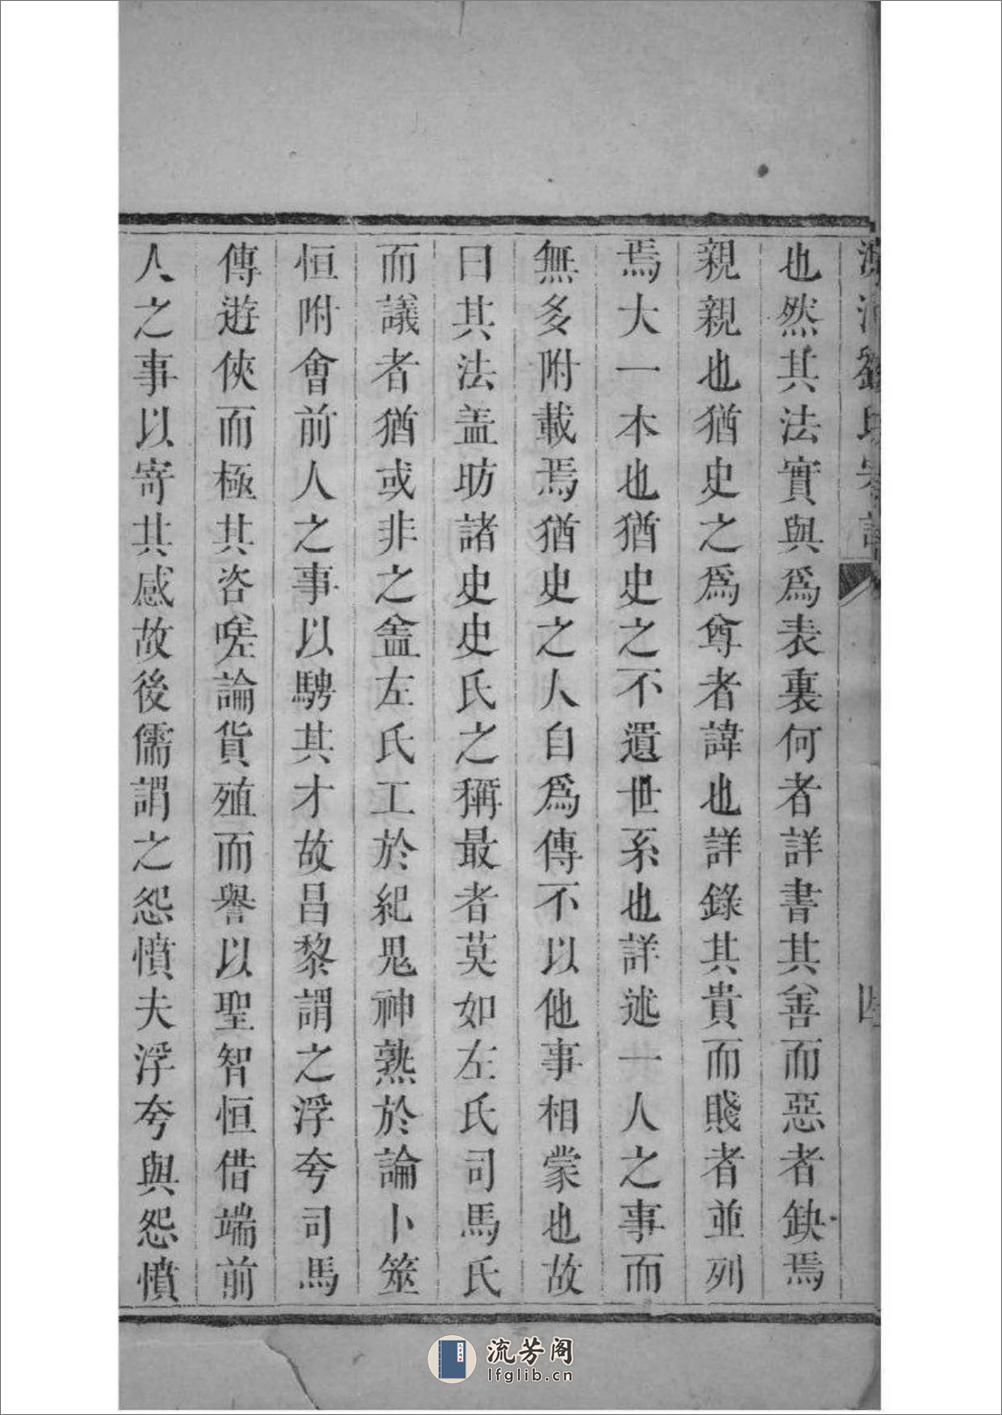 也然其法實與爲表裏何者詳書其善而惡者缺焉
親親也猶史之爲尊者諱也詳錄其貴而賤者並列
焉大一本也猶史之不遺世系也詳述一人之事而
無多附載焉猶史之人自爲傳不以他事相蒙也故
曰其法盖昉諸史史氏之稱最者莫如左氏司馬氏
而議者猶或非之盖左氏工於紀鬼神熟於論卜筮
恒附會前人之事以騁其才故昌黎謂之浮夸司馬
傳遊俠而極其咨嗟論貨殖而譽以聖智恒借端前
人之事以寄其感故後儒謂之怨憤夫浮夸與怨憤
流芳阁
lfglib.cn